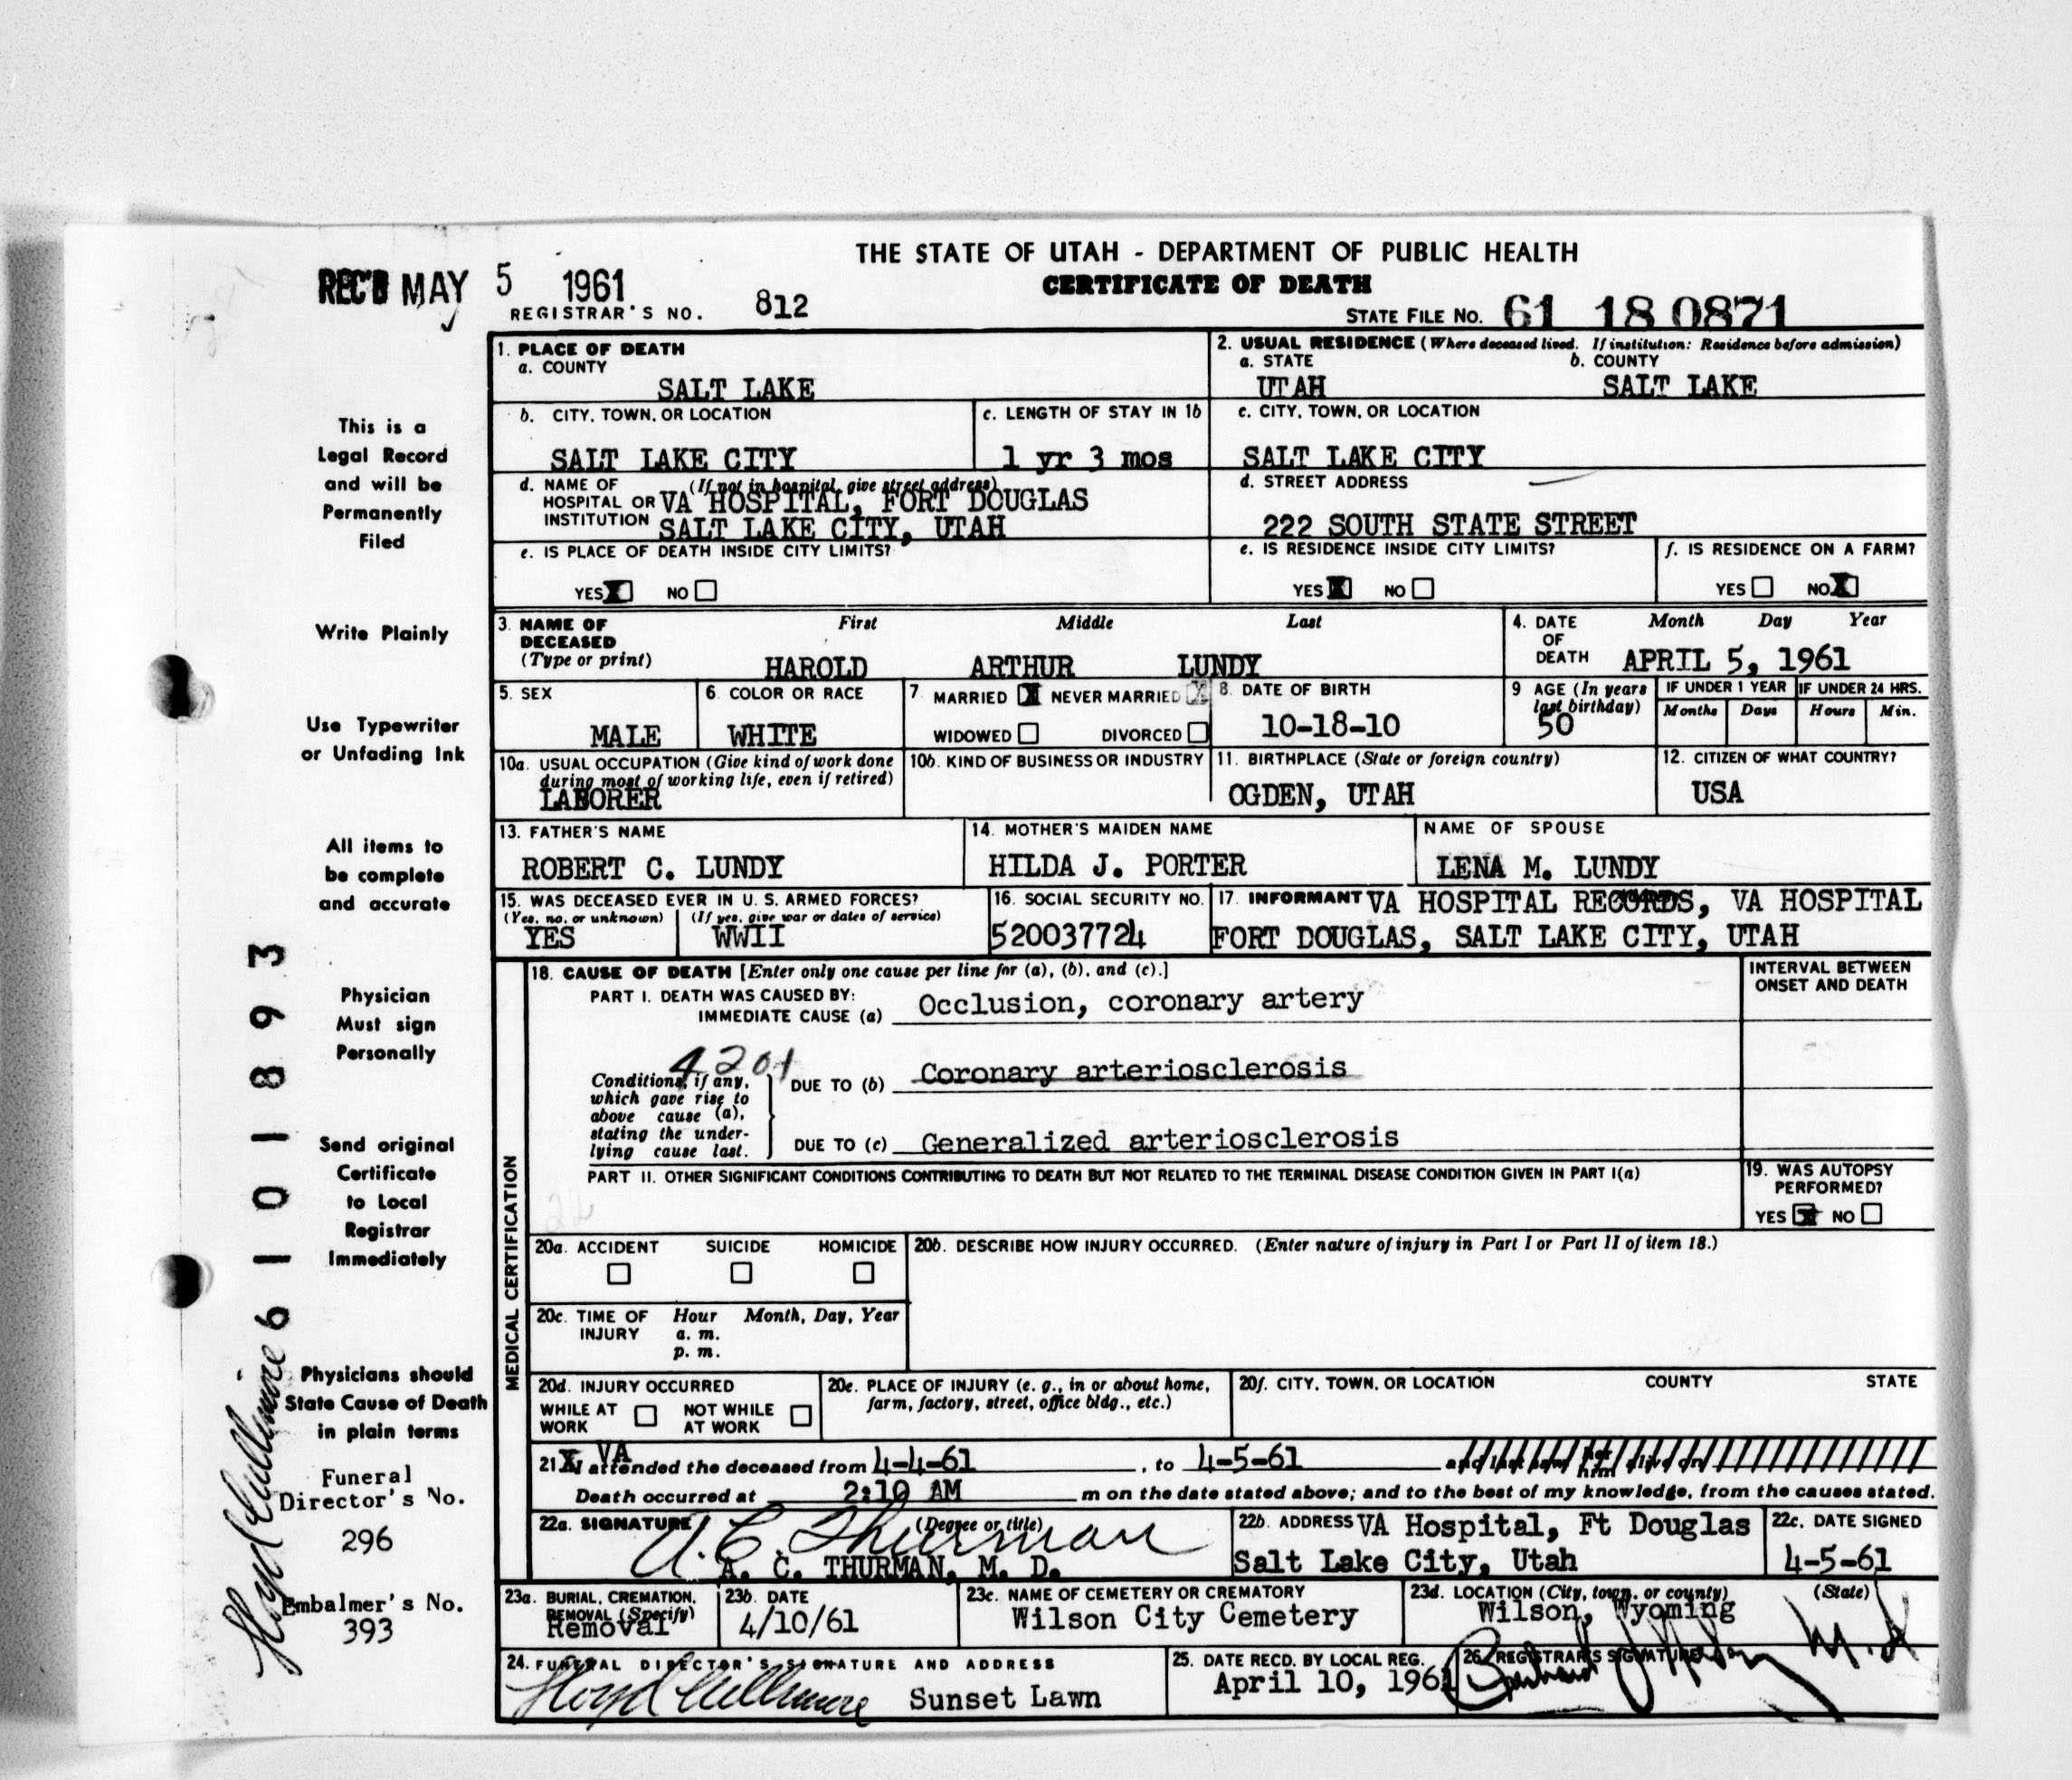 THE STATE OF UTAH - DEPARTMENT OF PUBLIC HEALTH
CERTIFICATE OF DEATH
REC'D MAY 5 1961
REGISTRAR'S NO. 812
STATE FILE NO. 61 18 0871
This is a
Legal Record
and will be
Permanently
Filed
Write Plainly
Use Typewriter
or Unfading Ink
All items to
be complete
and accurate
Physician
Must sign
Personally
Send original
Certificate
to Local
Registrar
Immediately
Physicians should
State Cause of Death
in plain terms
Funeral
Director's No.
296
Embalmer's No.
393
6101893
1. PLACE OF DEATH
a. COUNTY
SALT LAKE
2. USUAL RESIDENCE (Where deceased lived. If institution: Residence before admission)
a. STATE b. COUNTY
UTAH SALT LAKE
b. CITY, TOWN, OR LOCATION
SALT LAKE CITY
c. LENGTH OF STAY IN 1b
1 yr 3 mos
c. CITY, TOWN, OR LOCATION
SALT LAKE CITY
d. NAME OF (If not in hospital, give street address)
HOSPITAL OR VA HOSPITAL, FORT DOUGLAS
INSTITUTION SALT LAKE CITY, UTAH
d. STREET ADDRESS
222 SOUTH STATE STREET
e. IS PLACE OF DEATH INSIDE CITY LIMITS?
YES X NO
e. IS RESIDENCE INSIDE CITY LIMITS?
YES X NO
f. IS RESIDENCE ON A FARM?
YES NO X
3. NAME OF First Middle Last
DECEASED
(Type or print) HAROLD ARTHUR LUNDY
4. DATE Month Day Year
OF
DEATH APRIL 5, 1961
5. SEX
MALE
6. COLOR OR RACE
WHITE
7. MARRIED X NEVER MARRIED X
WIDOWED DIVORCED
8. DATE OF BIRTH
10-18-10
9 AGE (In years
last birthday)
50
IF UNDER 1 YEAR IF UNDER 24 HRS.
Months Days Hours Min.
10a. USUAL OCCUPATION (Give kind of work done
during most of working life, even if retired)
LABORER
10b. KIND OF BUSINESS OR INDUSTRY
11. BIRTHPLACE (State or foreign country)
OGDEN, UTAH
12. CITIZEN OF WHAT COUNTRY?
USA
13. FATHER'S NAME
ROBERT C. LUNDY
14. MOTHER'S MAIDEN NAME
HILDA J. PORTER
NAME OF SPOUSE
LENA M. LUNDY
15. WAS DECEASED EVER IN U. S. ARMED FORCES?
(Yes, no, or unknown) (If yes, give war or dates of service)
YES WWII
16. SOCIAL SECURITY NO.
520037724
17. INFORMANT VA HOSPITAL RECORDS, VA HOSPITAL
FORT DOUGLAS, SALT LAKE CITY, UTAH
MEDICAL CERTIFICATION
18. CAUSE OF DEATH [Enter only one cause per line for (a), (b), and (c).]
PART I. DEATH WAS CAUSED BY:
IMMEDIATE CAUSE (a) Occlusion, coronary artery
INTERVAL BETWEEN
ONSET AND DEATH
4201
Conditions, if any,
which gave rise to
above cause (a),
stating the under-
lying cause last.
DUE TO (b) Coronary arteriosclerosis
DUE TO (c) Generalized arteriosclerosis
PART II. OTHER SIGNIFICANT CONDITIONS CONTRIBUTING TO DEATH BUT NOT RELATED TO THE TERMINAL DISEASE CONDITION GIVEN IN PART I(a)
19. WAS AUTOPSY
PERFORMED?
YES X NO
20a. ACCIDENT SUICIDE HOMICIDE
20b. DESCRIBE HOW INJURY OCCURRED. (Enter nature of injury in Part I or Part II of item 18.)
20c. TIME OF Hour Month, Day, Year
INJURY a. m.
p. m.
20d. INJURY OCCURRED
WHILE AT NOT WHILE
WORK AT WORK
20e. PLACE OF INJURY (e. g., in or about home,
farm, factory, street, office bldg., etc.)
20f. CITY, TOWN, OR LOCATION COUNTY STATE
21. VA attended the deceased from 4-4-61, to 4-5-61 and last saw him alive on
Death occurred at 2:10 AM m on the date stated above; and to the best of my knowledge, from the causes stated.
22a. SIGNATURE (Degree or title)
A. C. Thurman
A. C. THURMAN, M. D.
22b. ADDRESS VA Hospital, Ft Douglas
Salt Lake City, Utah
22c. DATE SIGNED
4-5-61
23a. BURIAL, CREMATION,
REMOVAL (Specify)
Removal
23b. DATE
4/10/61
23c. NAME OF CEMETERY OR CREMATORY
Wilson City Cemetery
23d. LOCATION (City, town, or county) (State)
Wilson, Wyoming
24. FUNERAL DIRECTOR'S SIGNATURE AND ADDRESS
Sunset Lawn
25. DATE RECD. BY LOCAL REG.
April 10, 1961
26. REGISTRAR'S SIGNATURE
M.D.